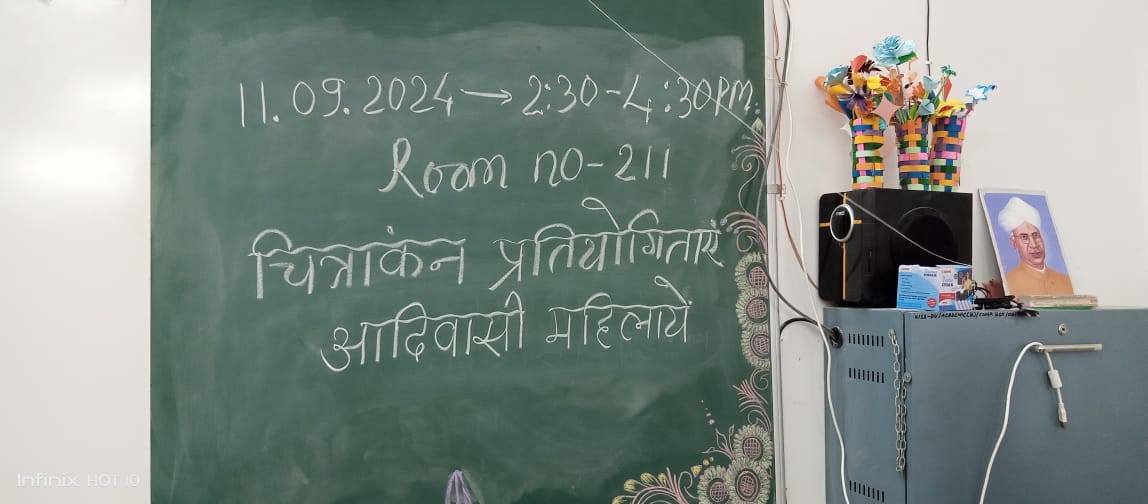 11.09.2024 → 2:30-4:30PM.
Room no-211
चित्रांकन प्रतियोगिताएं
आदिवासी महिलायें
Infinix HOT 10